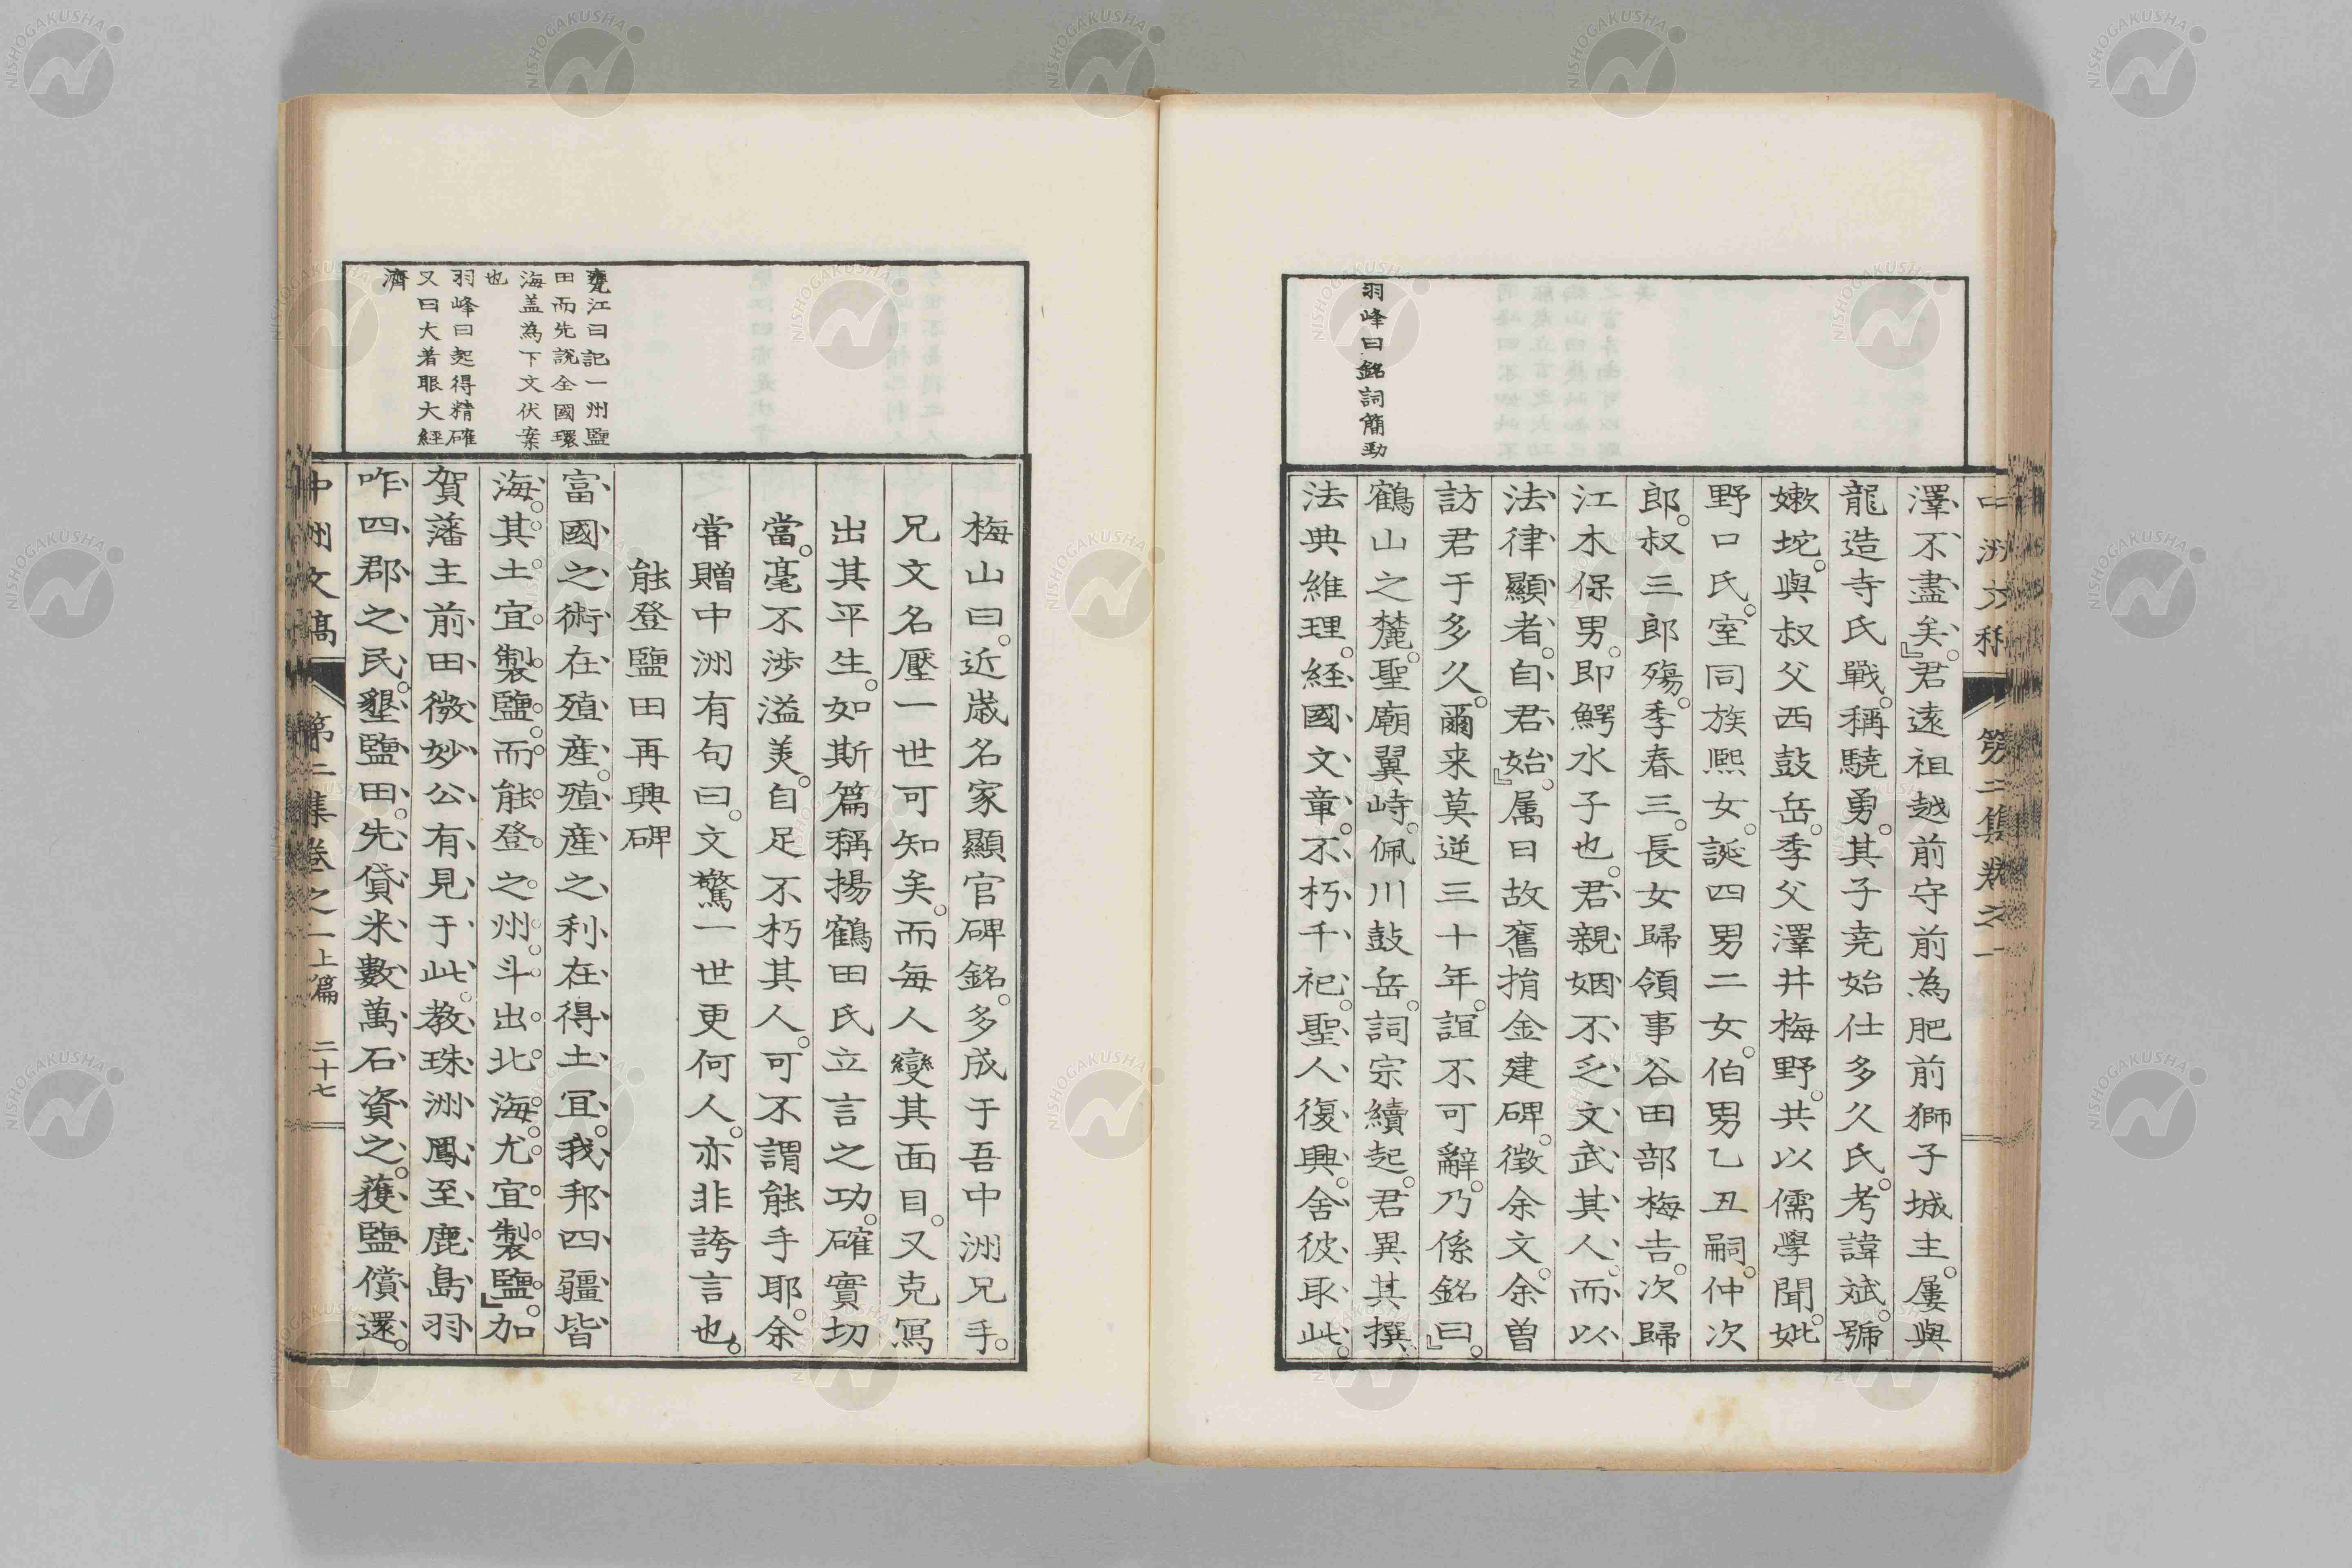 中洲文稿 第二集卷之一
羽峰曰銘詞簡勁
澤不盡矣。』君遠祖越前守前為肥前獅子城主。屢與
龍造寺氏戰。稱驍勇。其子尭始仕多久氏。考諱斌。號
嫩坨。與叔父西鼓岳。季父澤井梅野。共以儒學聞。妣
野口氏。室同族熙女。誕四男二女。伯男乙丑嗣。仲次
郎。叔三郎殤。季春三。長女歸領事谷田部梅吉。次歸
江木保男。即鰐水子也。君親姻不乏文武其人。而以
法律顯者。自君始。』属曰故舊捐金建碑。徴余文。余曽
訪君于多久。爾来莫逆三十年。誼不可辭。乃係銘曰。』
鶴山之麓。聖廟翼峙。佩川鼓岳。詞宗續起。君異其撰
法典維理。経國文章。不朽千祀。聖人復興。舍彼取此。
甕江曰記一州鹽
田而先說全國環
海盖為下文伏案
也
羽峰曰起得精確
又曰大著眼大經
濟
梅山曰。近歳名家顯官碑銘。多成于吾中洲兄手。
兄文名壓一世可知矣。而每人變其面目。又克冩
出其平生。如斯篇稱揚鶴田氏立言之功。確實切
當。毫不渉溢美。自足不朽其人。可不謂能手耶。余
甞贈中洲有句曰。文驚一世更何人。亦非誇言也。
能登鹽田再興碑
富國之術在殖産。殖産之利在得土宜。我邦四疆皆
海。其土宜製鹽。而能登之州斗出北海。尤宜製鹽。』加
賀藩主前田微妙公有見于此。教珠洲鳳至鹿島羽
咋四郡之民。墾鹽田。先貸米數萬石資之。獲鹽償還。
中洲文稿 第二集卷之一上篇 二十七
NISHOGAKUSHA